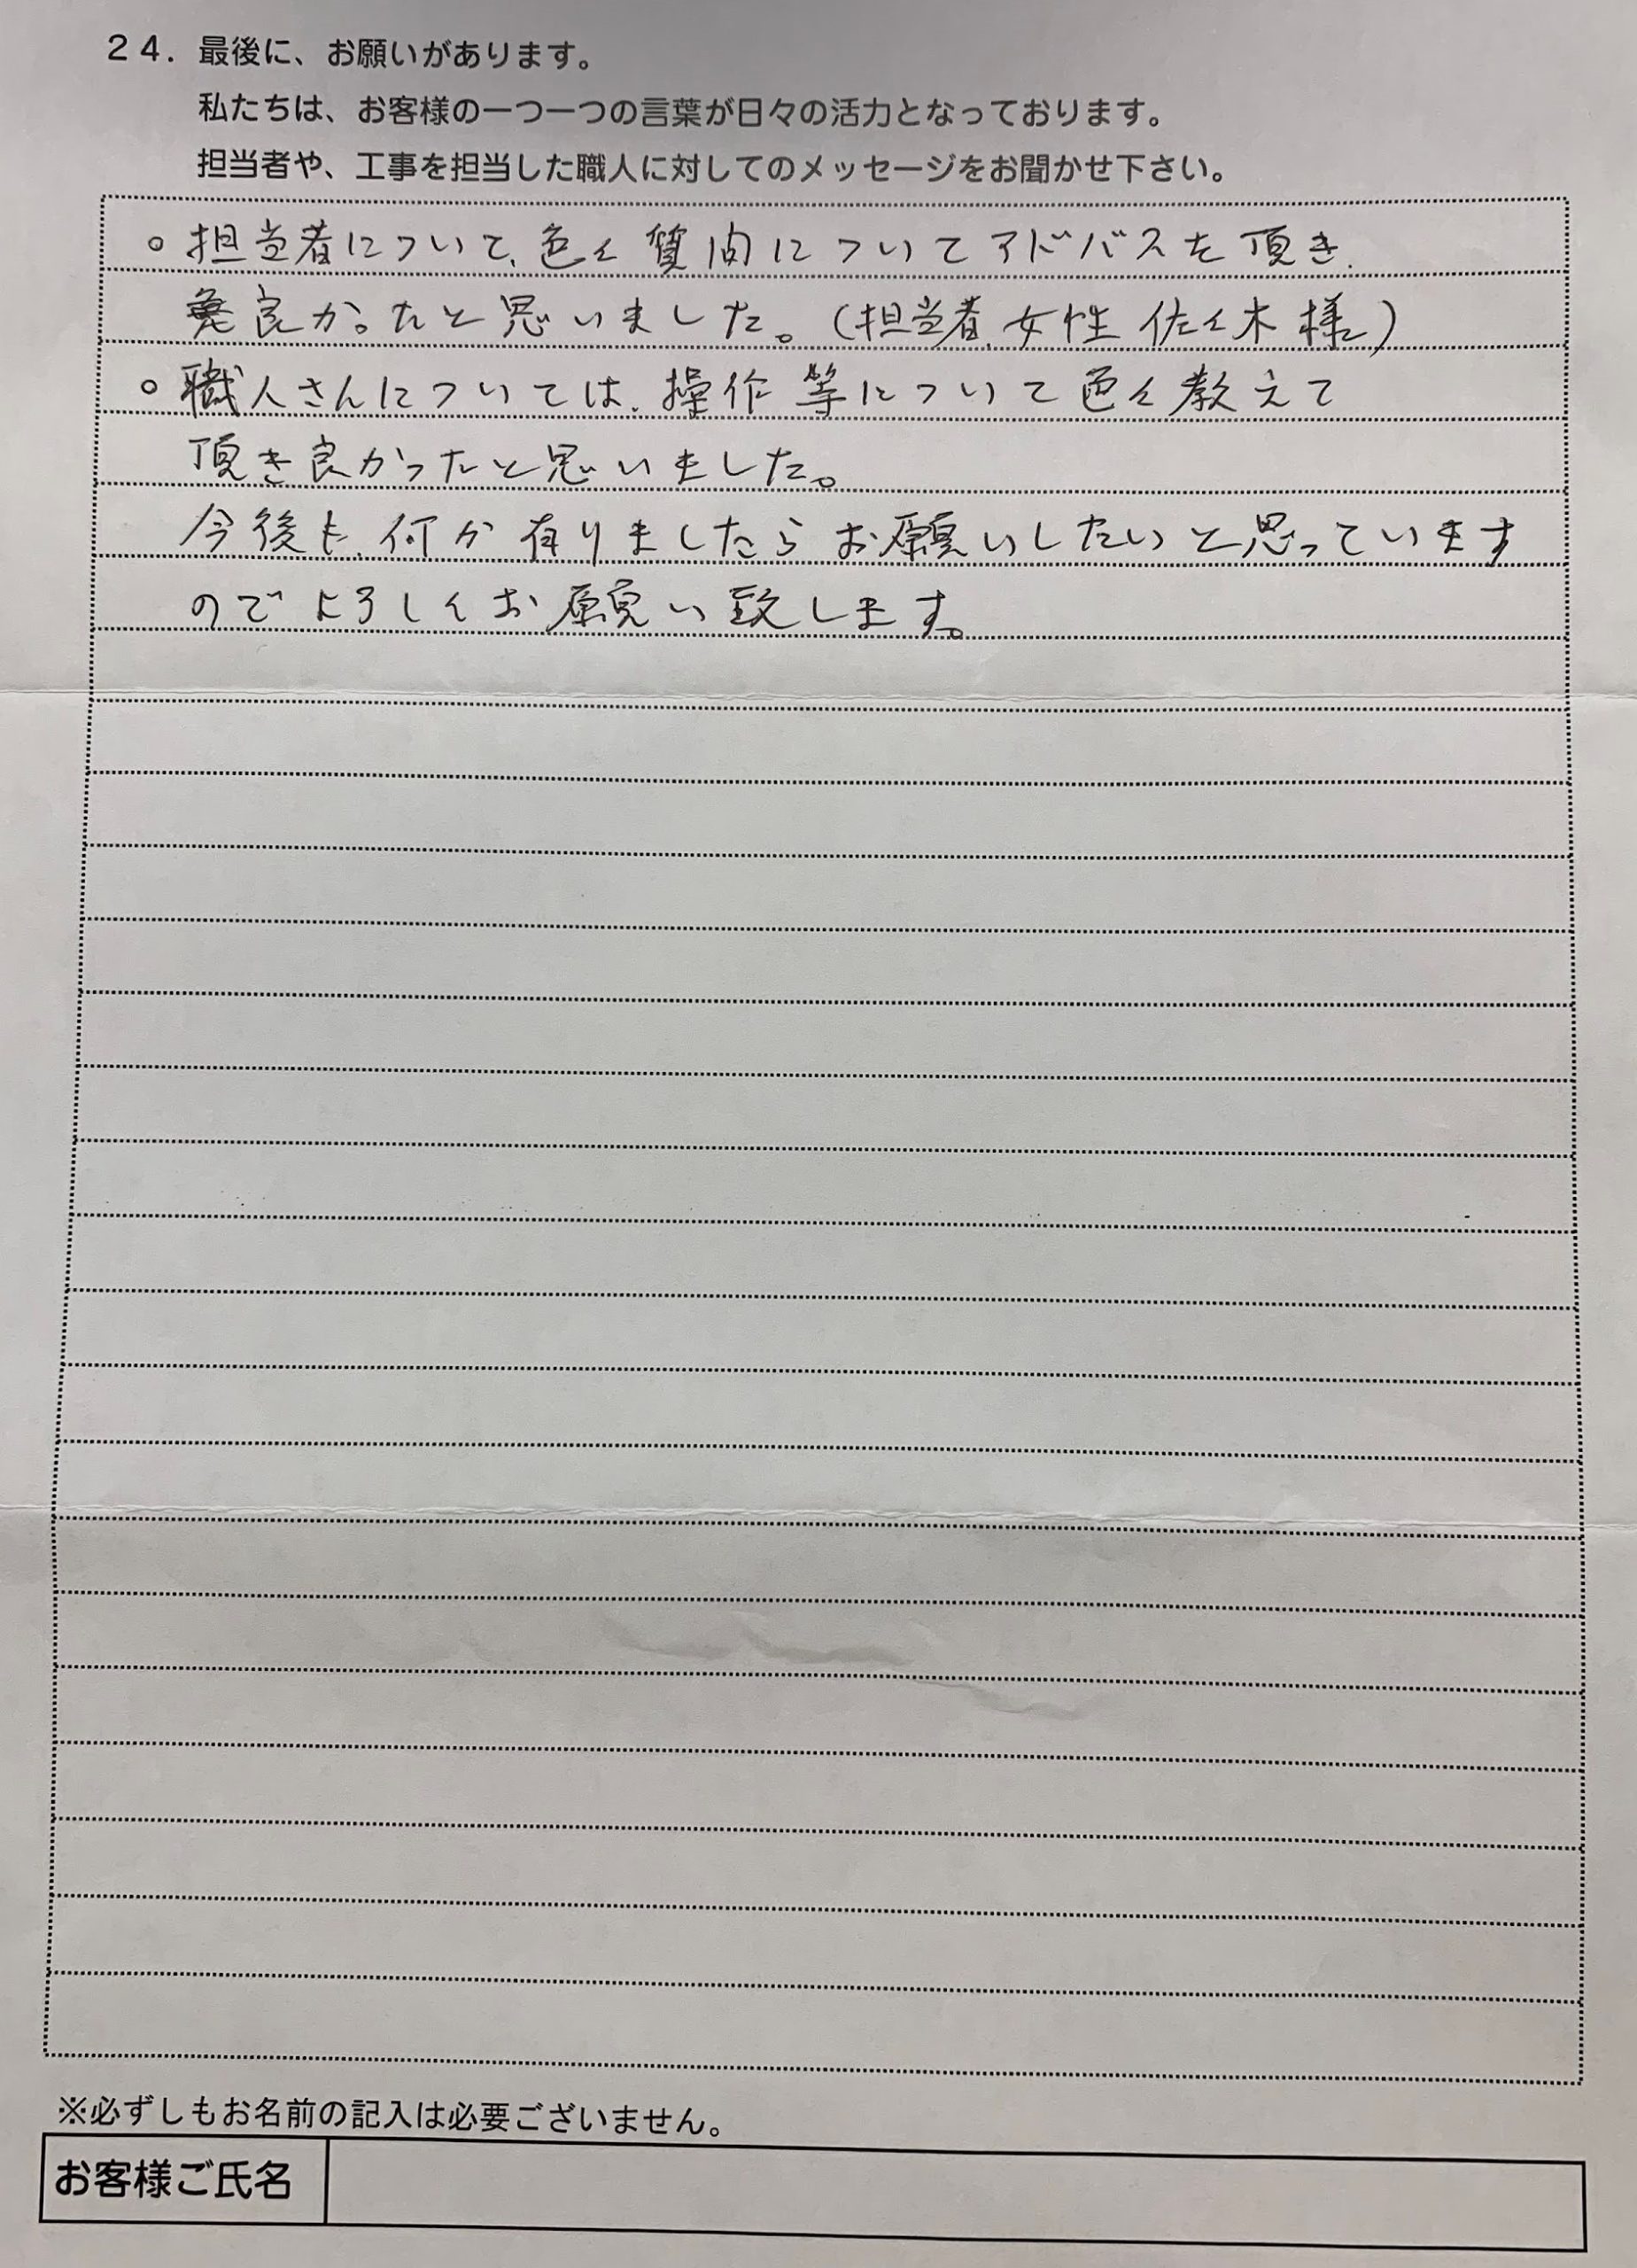 24. 最後に、お願いがあります。
私たちは、お客様の一つ一つの言葉が日々の活力となっております。
担当者や、工事を担当した職人に対してのメッセージをお聞かせ下さい。
○担当者について、色々質問についてアドバスを頂き、
良かったと思いました。(担当者、女性 佐々木様)
○職人さんについては、操作等について色々教えて
頂き良かったと思いました。
今後も、何か有りましたらお願いしたいと思っています
のでよろしくお願い致します。
※必ずしもお名前の記入は必要ございません。
お客様ご氏名